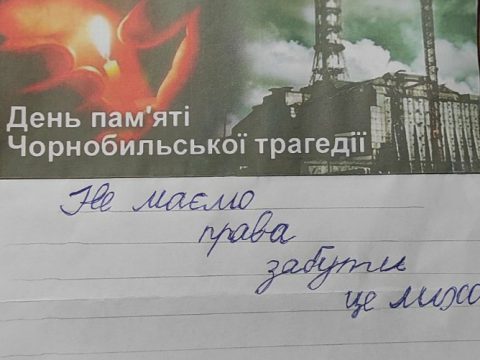 День пам'яті
Чорнобильської трагедії
Не маємо
права
забути
це лихо